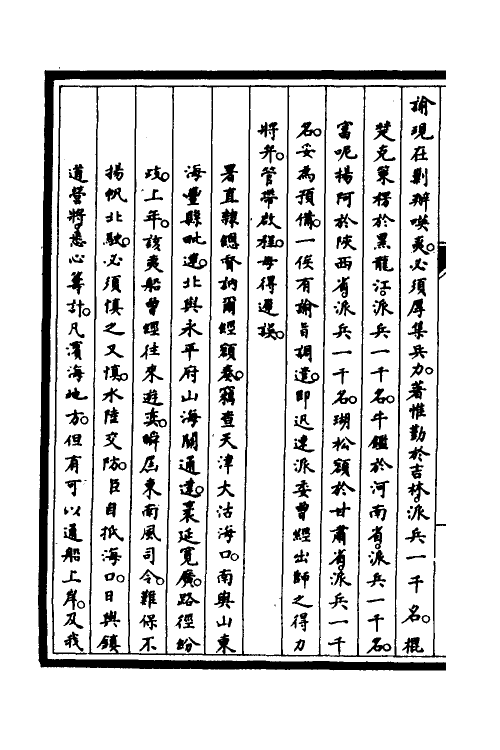 諭現在剿辦嘆夷。必須厚集兵力。著惟勤於吉林。派兵一千名。棍
楚克策楞於黑龍江。派兵一千名。牛鑑於河南省。派兵一千名。
富呢揚阿於陝西省。派兵一千名。瑚松額於甘肅省。派兵一千
名。妥為預備。一俟有諭旨調遣。即迅速派委曾經出師之得力
將弁。管帶啟程。毋得遲誤。
署直隸總督訥爾經額奏。竊查天津大沽海口。南與山東
海豐縣毗連。北與永平府山海關通達。袤延寬廣。路徑紛
歧。上年。該夷船曾經往來遊奕。瞬屆東南風司令。難保不
揚帆北駛。必須慎之又慎。水陸交防。臣自抵海口。日與鎮
道營將。悉心籌計。凡濱海地方。但有可以通船上岸。及我